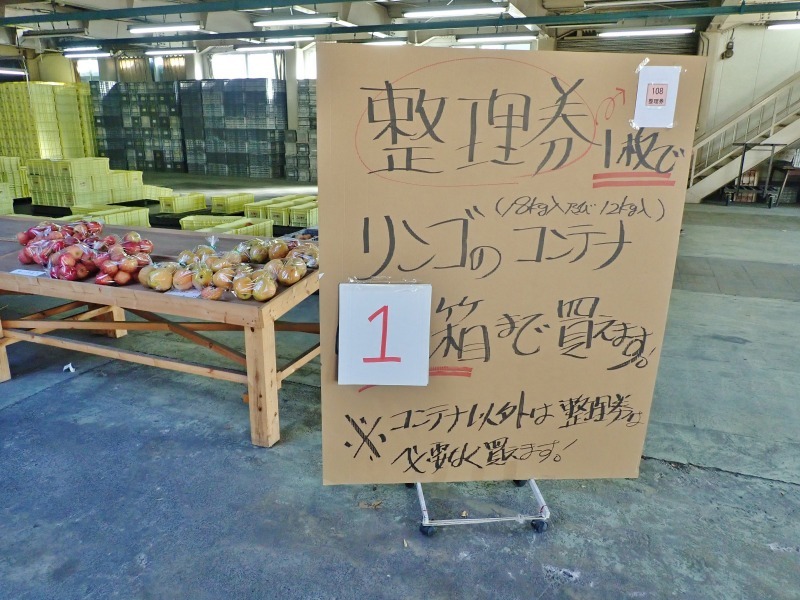 108
整理券
整理券 1枚で
(18kg入及び12kg入)
リンゴのコンテナ
1箱まで買えます。
※コンテナ以外は整理券は
必要なく買えます!